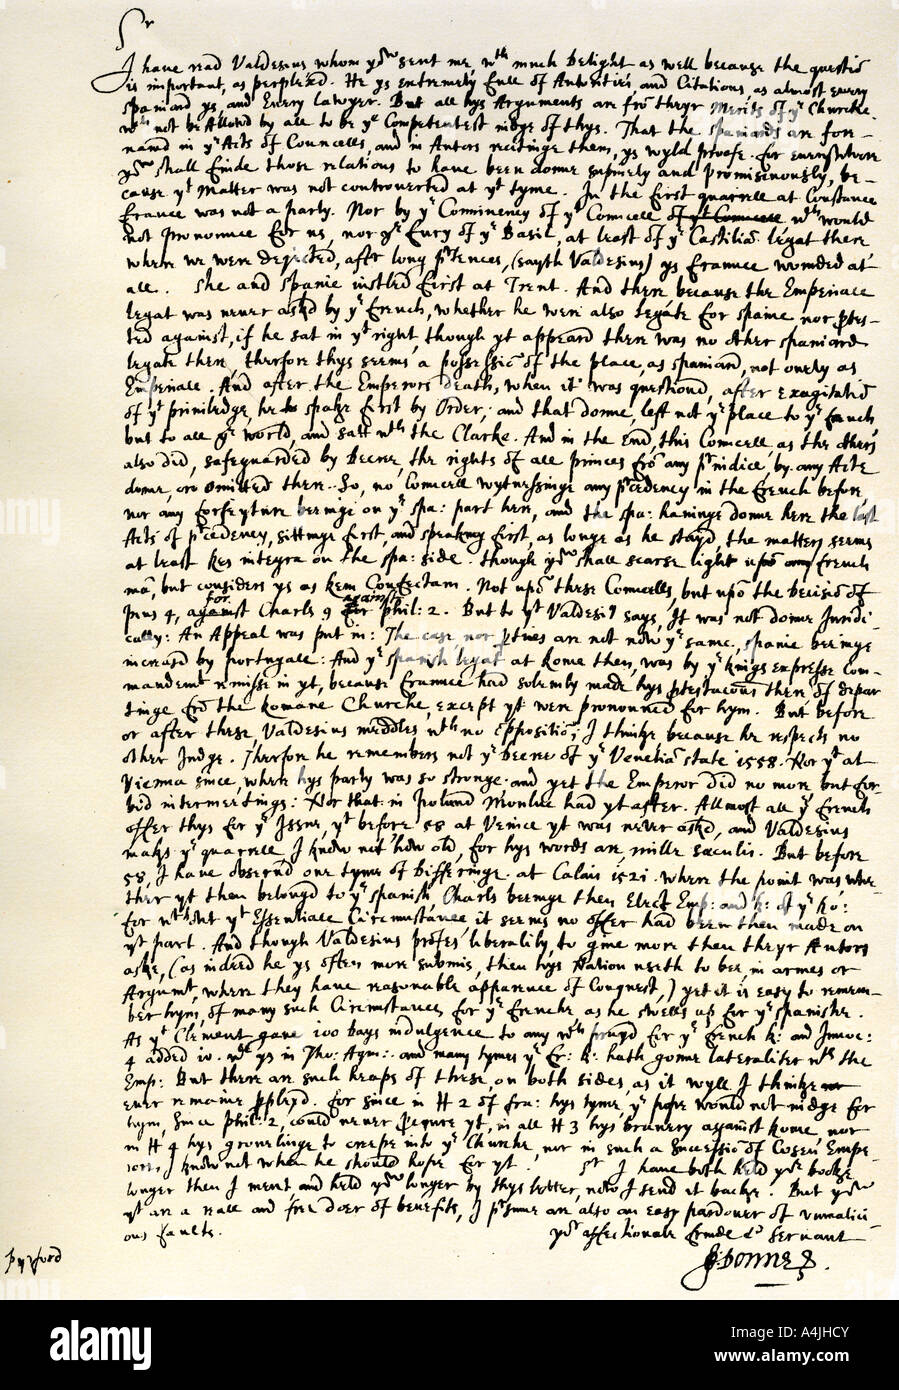 Sr
I have read Valdesius whom yow sent me wth much delight as well because the questiō
is important, as perplexd. He ys extremely full of Autorities, and Citations, as almost every
Spaniard ys, and Every Lawyer. But all hys Arguments are frō theyr Merits of ye Churche
wch not be Allowd by all to be ye Competentest iudge of thys. That the Spaniards are for-
namd in ye Acts of Councells, and in Autors recitinge them, ys wyld proofe. For everywhere
yow shall finde those relations to have been donne supinely and promiscuously, be-
cause yt Matter was not controverted at yt tyme. In the first quarrell at Constance
France was not a party. Nor by ye Cominency of yt Councell of yt Councell wch would
not pronounce for us, nor ye Fury of ye Basil, at least of ye Castiliā legat there
where we were dejected, after long prtences, (sayth Valdesius) ys France wounded at
all. She and Spaine iustled first at Trent. And there because the Emperiall
legat was never askd by ye French, whether he were also legate for Spaine nor ptes-
ted against, if he sat in yt right, though yt appeard there was no other Spaniard
legate there, therfore thys seems a possessiō of the place, as Spaniard, not onely as
Emperiale. And after the Emperors death, when it was questiond, after exagitatiō
of yt priviledge, he spake first by Order; and that donne, left not ye place to ye French
but to all ye world, and satt wth the Clarke. And in the End, this Councell, as the others
also did, safeguarded by Decree, the rights of all princes frō any priudice, by any Acte
donne, or omitted there. So, no Councell wytnessinge any prcedency in the French before
nor any forfeyture beeinge on ye Spa: part here, and the Spa: havinge donne here the last
Acts of prcedency, sittinge first, and speaking first, as longe as he stayd, the matter seems
at least Res integra on the Spa: side. Though yow shall scarse light upō any French
mā, but considers ys as Rem Confectam. Not upō these Councells, but upō the Decisiō of
Pius 4, for against Charls 9 against for Phil: 2. But to yt Valdesius says, It was not donne Juridi-
cally: An Appeal was put in: The case nor pties are not now ye same, Spaine beeinge
increasd by Portugale: And ye Spanish legat at Rome then, was by ye kings expresse com-
mandemt remisse in yt, because France had solemly made hys ptestacōns then of depar-
tinge frō the Romane Churche, except yt were pronounced for hym. But before
or after these Valdesius meddles wth no oppositiō; I thinke because he respects no
other Judge. Therfore he remembers not ye Decree of ye Venetiā state 1558. Nor yt at
Vienna since, when hys party was so stronge. and yet the Emperor did no more but for-
bid intermeetings: Nor that in Poland Monluc had yt after. Allmost all ye French
offer thys for ye Issue, yt before 58 at Venice yt was never askd, and Valdesius
makes ye quarrell I know not how old, for hys words are, mille saeculis. But before
58, I have observd one tyme of differinge. at Calais 1521. where the point was whe-
ther yt then belongd to ye Spanish, Charls beeinge then Elect Emp: and k: of ye Ro:
for wthout yt Essentiall Circumstance, it seems no offer had been then made on
yt part. And though Valdesius profes liberality, to give more then theyr Autors
aske, (as indeed he ys often more submis, then hys Nation useth to bee, in armes or
Argumt, where they have reasonable apparence of Conquest,) yet it is easy to remem-
ber hym, of many such Circumstances for ye French, as he swells up for ye Spanishe.
As yt Clement gave 100 days indulgence to any wch prayd for ye French k: and Innoc:
4 added 10. wch ys in Tho: Aqin: and many tymes ye Fr: k: hath gonne lateraliter wth the
Emp: But there are such heaps of these, on both sides, as it wyll I thinke
ever remaine pplexd. For since in H 2 of Fra: hys tyme, ye pope would not iudge for
hym, since Phil: 2, could never pcure yt, in all H 3 hys bravery against Rome, nor
in H 4 hys grovelinge to creepe into ye Churche, nor in such a Successiō of Cosen Empe-
rors, I know not when he should hope for yt. Sr I have both held yowr booke
longer then I ment, and held yow longer by thys letter, now I send it backe. But yow
yt are a reall and free doer of benefits, I prsume are also an easy pardoner of unmalici-
ous faults.
yowr affectionate frinde & servant
J: Donne
alamy
A4JHCY
www.alamy.com